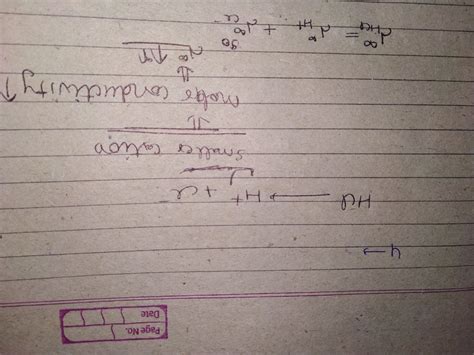 Page No.
Date
4 →
HCl ⟶ H⁺ + Cl⁻
Smaller cation
⇓
molar conductivity ↑
⇓
λ∞ ↑↑
λ∞HCl = λ∞H⁺ + λ∞Cl⁻
90